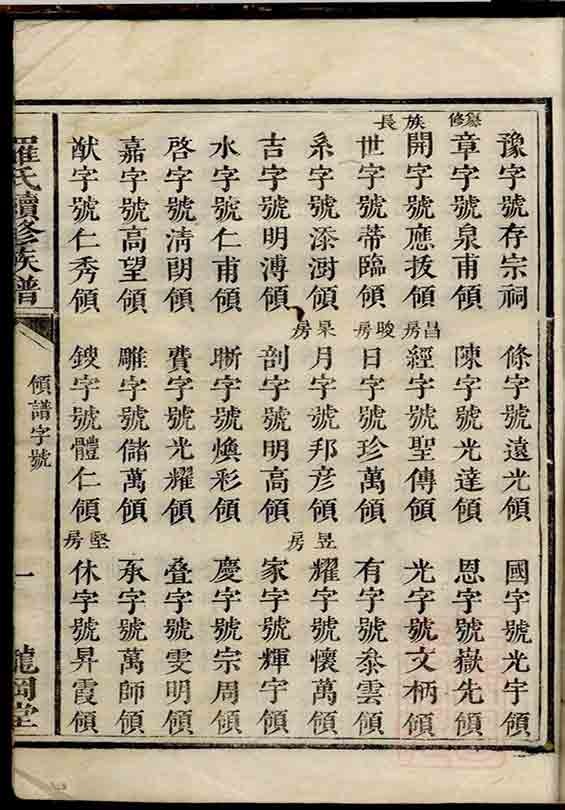 豫字號存宗祠
纂修
章字號泉甫領
族長
開字號應拔領
世字號蒂臨領
系字號添澍領
吉字號明溥領
水字號仁甫領
啓字號清朗領
嘉字號高望領
猷字號仁秀領
條字號遠光領
陳字號光達領
昌房
經字號聖傳領
晙房
日字號珍萬領
杲房
月字號邦彥領
剖字號明高領
晰字號煥彩領
費字號光耀領
雕字號儲萬領
鎪字號體仁領
國字號光宇領
恩字號嶽先領
光字號文柄領
有字號泰雲領
昱房
耀字號懷萬領
家字號輝宇領
慶字號宗周領
叠字號雯明領
承字號萬師領
堅房
休字號昇霞領
羅氏續修族譜
領譜字號
一
龍岡堂